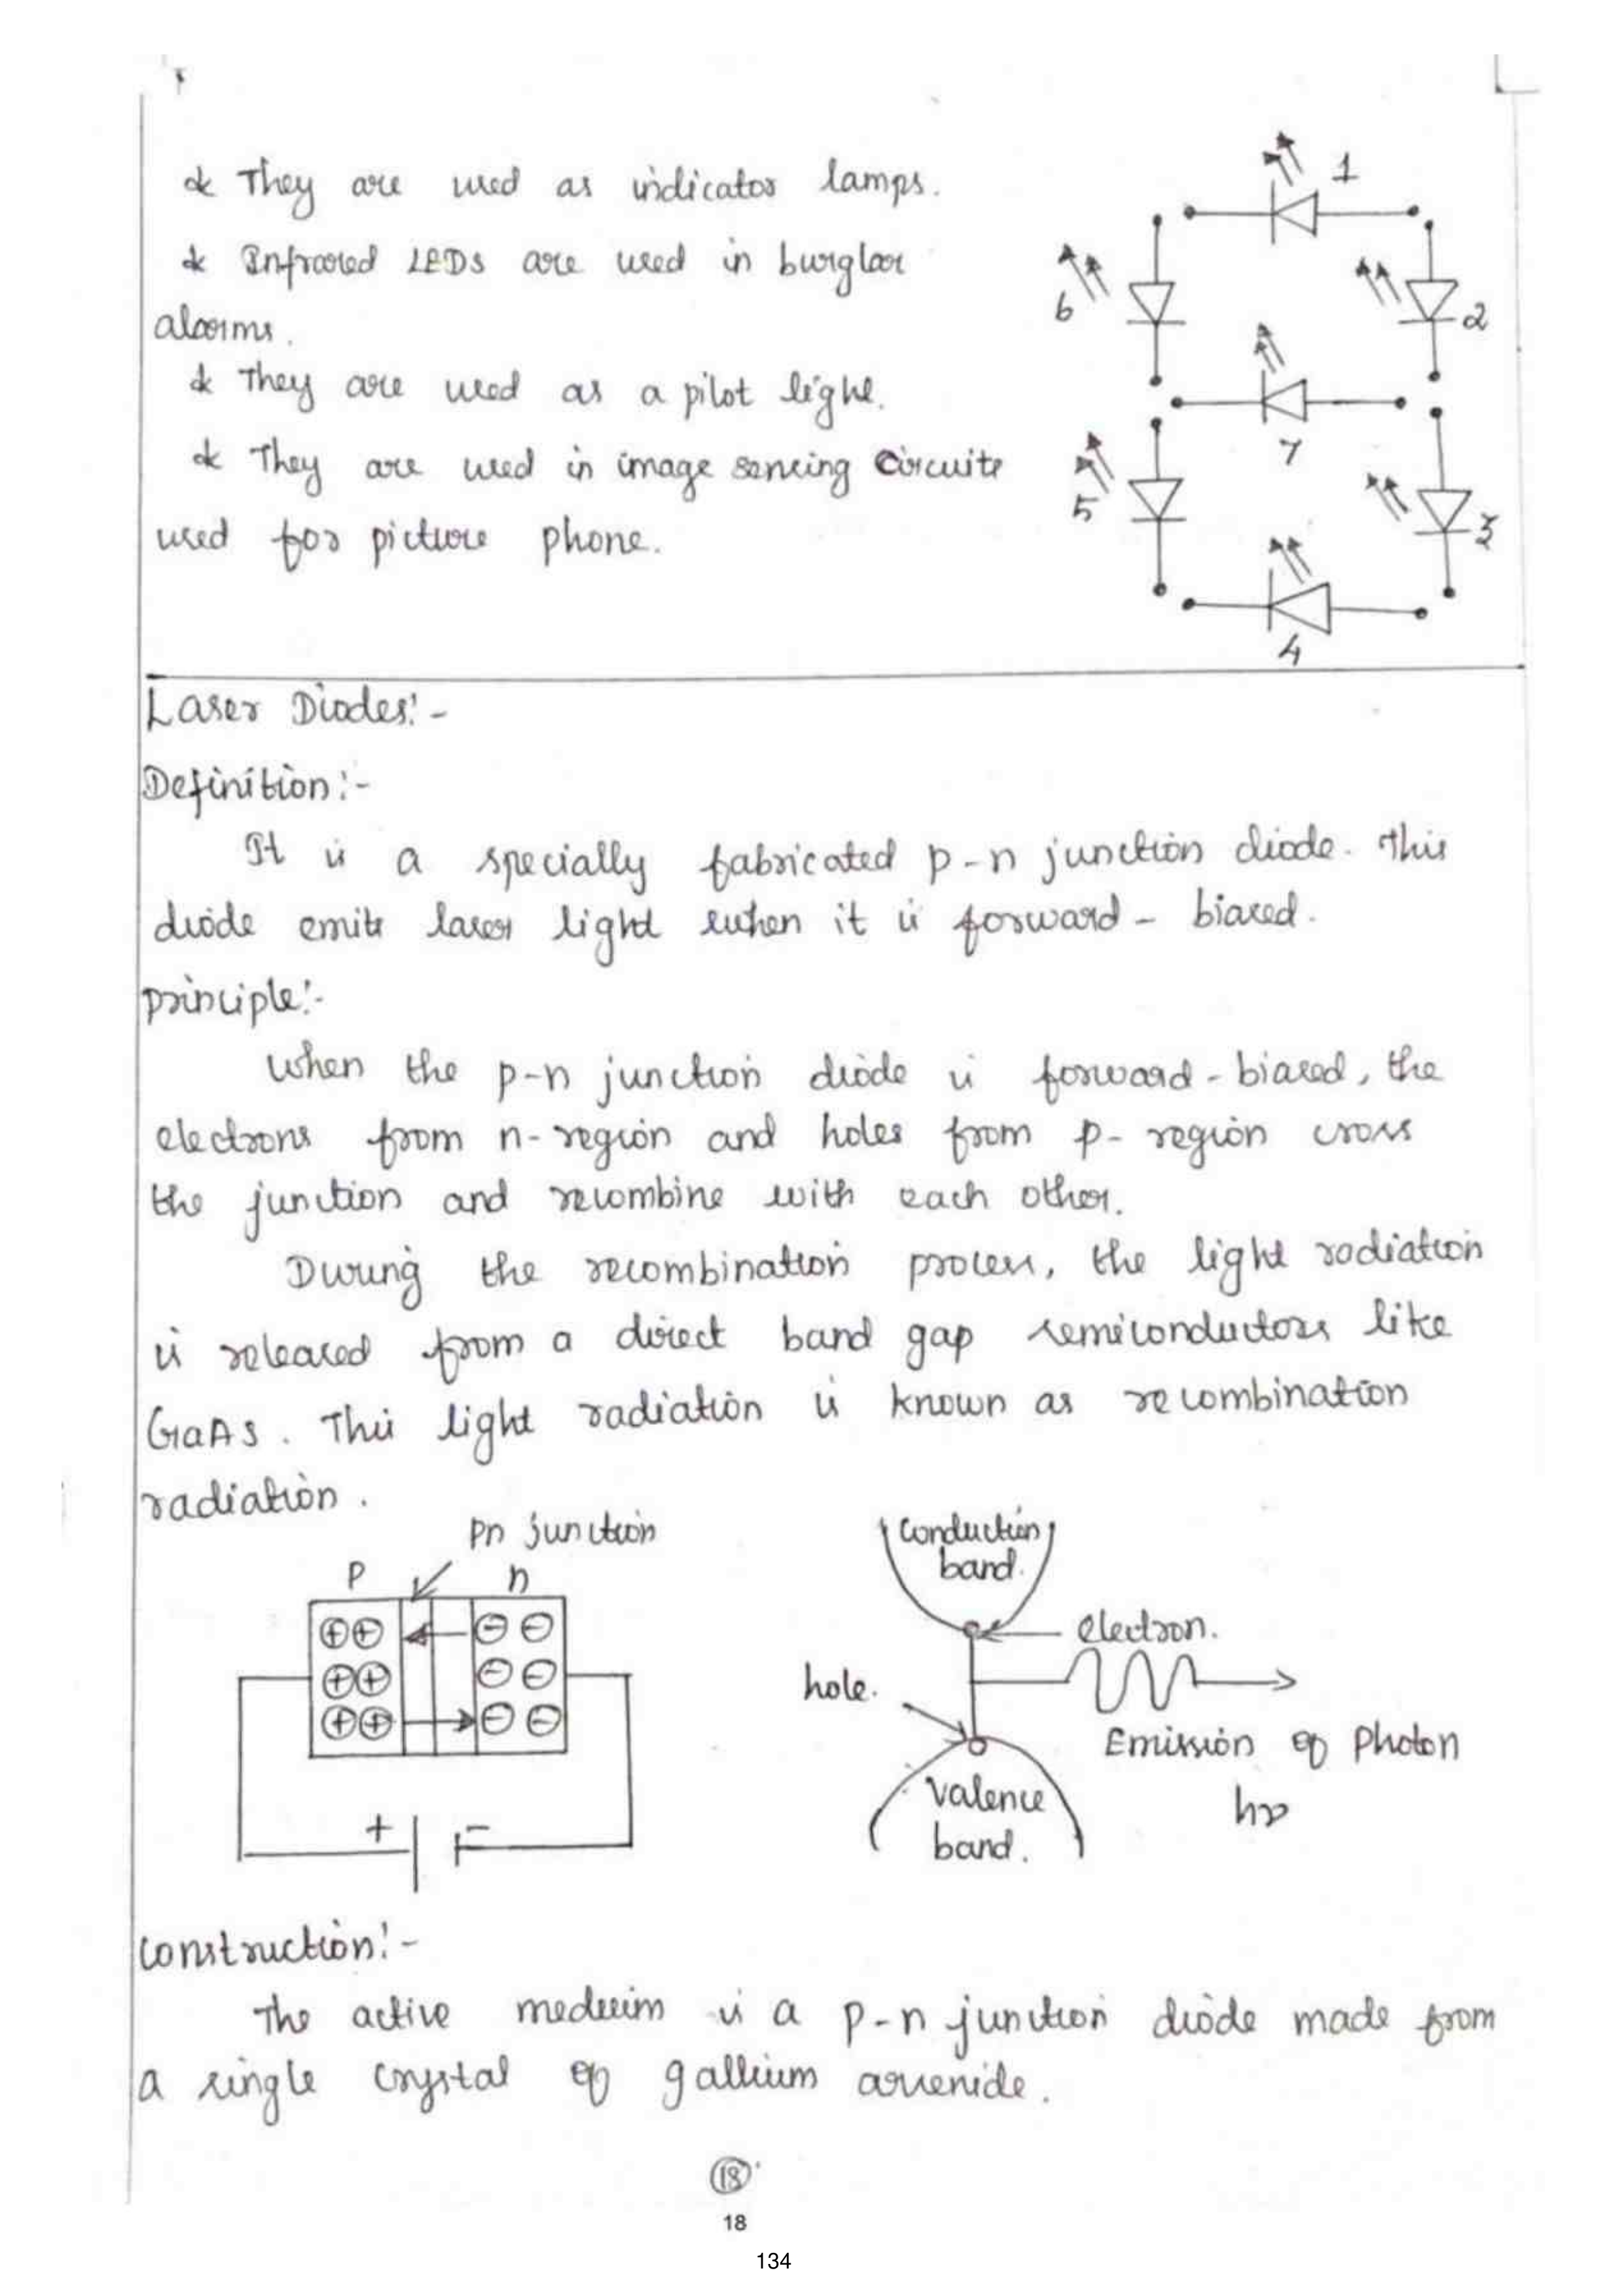 * They are used as indicator lamps.
* Infrared LEDs are used in burglar
alarms.
* They are used as a pilot light.
* They are used in image sensing circuits
used for picture phone.
1
6
2
7
5
3
4
Laser Diodes:-
Definition:-
It is a specially fabricated p-n junction diode. This
diode emits laser light when it is forward-biased.
principle:-
When the p-n junction diode is forward-biased, the
electrons from n-region and holes from p-region cross
the junction and recombine with each other.
During the recombination process, the light radiation
is released from a direct band gap semiconductors like
GaAs. This light radiation is known as recombination
radiation.
Pn junction
P
n
+ -
Conduction
band.
electron.
hole.
Emission of Photon
hν
Valence
band.
Construction:-
The active medium is a p-n junction diode made from
a single crystal of gallium arsenide.
18
18
134